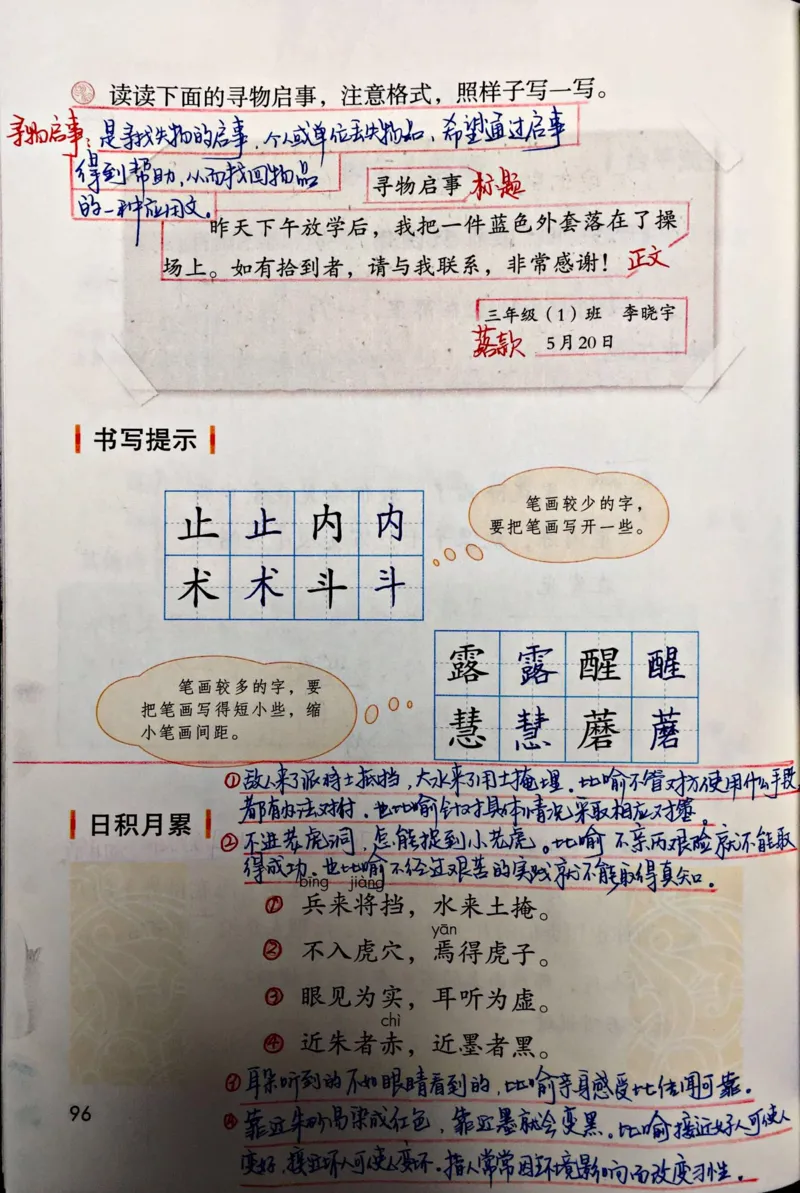 读读下面的寻物启事，注意格式，照样子写一写。
寻物启事：是寻找失物的启事，个人或单位丢失物品，希望通过启事
得到帮助，从而找回物品
的一种应用文。
寻物启事 标题
昨天下午放学后，我把一件蓝色外套落在了操
场上。如有拾到者，请与我联系，非常感谢！ 正文
三年级（1）班 李晓宇
落款 5月20日
书写提示
笔画较少的字，
要把笔画写开一些。
止 止 内 内
术 术 斗 斗
笔画较多的字，要
把笔画写得短小些，缩
小笔画间距。
露 露 醒 醒
慧 慧 蘑 蘑
①敌人来了派将士抵挡，大水来了用土掩埋。比喻不管对方使用什么手段，
都有办法对付。也比喻针对具体情况采取相应对策。
日积月累
②不进老虎洞，怎能捉到小老虎。比喻不亲历艰险就不能取
得成功。也比喻不经过艰苦的实践就不能取得真知。
bīng jiàng
① 兵来将挡，水来土掩。
yān
② 不入虎穴，焉得虎子。
③ 眼见为实，耳听为虚。
chì
④ 近朱者赤，近墨者黑。
③耳朵听到的不如眼睛看到的，比喻亲身感受比传闻可靠。
④靠近朱砂易染成红色，靠近墨就会变黑。比喻接近好人可使人
变好，接近坏人可使人变坏。指人常常因环境影响而改变习性。
96